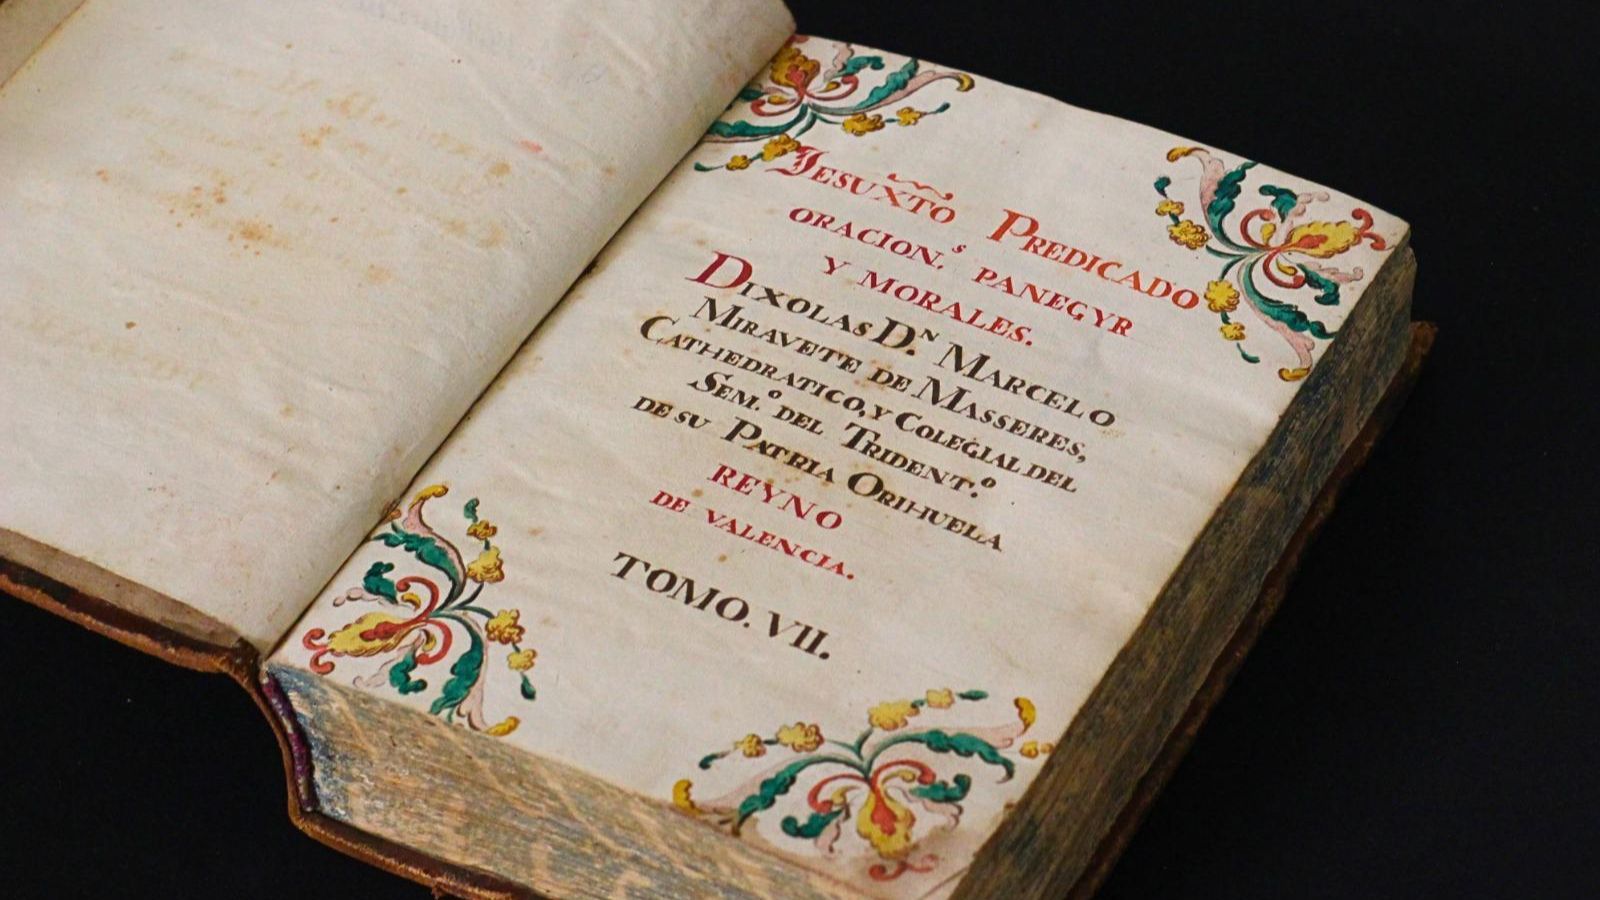 JESUXTO PREDICADO
ORACION.ˢ PANEGYR
Y MORALES.
DIXOLAS D.ᴺ MARCELO
MIRAVETE DE MASSERES,
CATHEDRATICO, Y COLEGIAL DEL
SEM.º DEL TRIDENT.º
DE SU PATRIA ORIHUELA
REYNO
DE VALENCIA.
TOMO. VII.